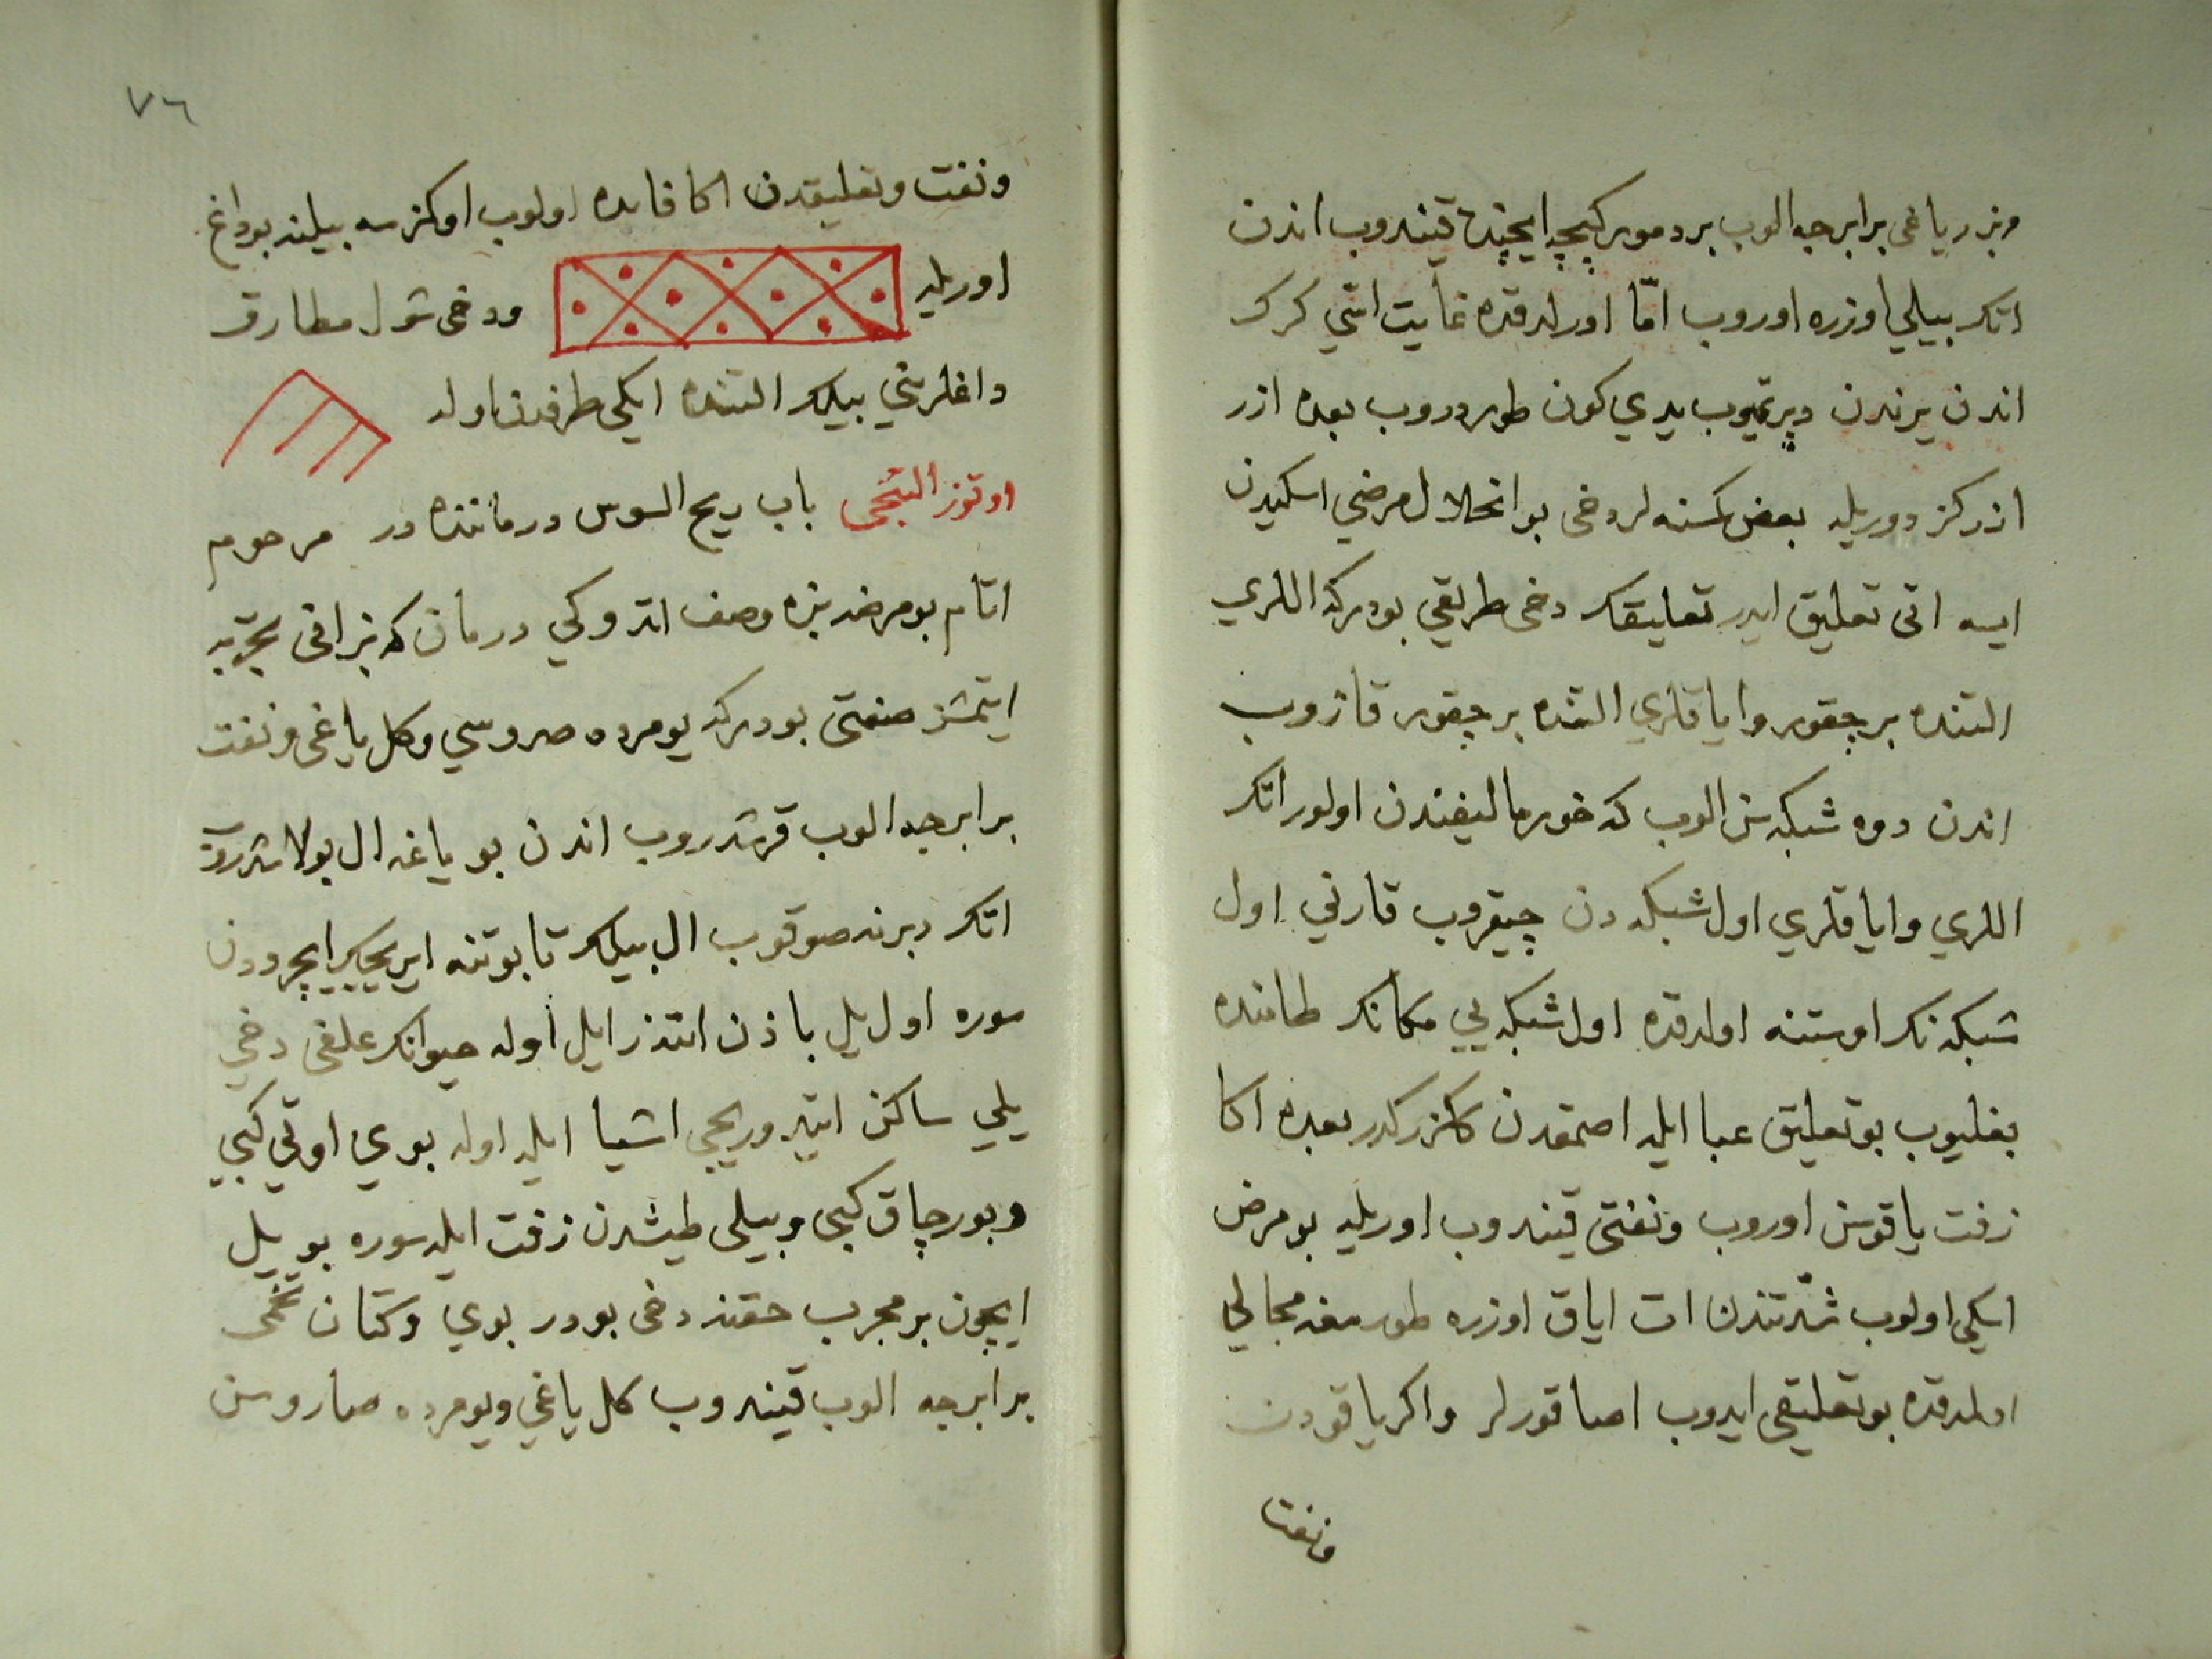 وبزر ياغى برابرجه الوب بر دمور كپچه ايچنده قينه‌دوب اندن
اتك بيلي اوزره اوروب امّا اورلدقده غايت اسّي كرك
اندن يرندن دپرتميوب يدي كون طوردروب بعده ازر
ازر كزدوريله بعض كسنه لر دخى بو انحلال مرضي اسكيدن
ايسه اتى تعليق ايدر تعليقك دخى طريقي بودركه اللري
التنده بر چقور واياقلري التنده بر چقور قازوب
اندن دوه شبكه سن الوب كه خورما ليفندن اولور اتك
اللري واياقلري اول شبكه دن چيقروب قارني اول
شبكه نك اوستنه اولدقده اول شبكه يي مكانك طامنده
بغليوب بو تعليق عبا ايله اصمقدن كزركدر بعده اكا
زفت ياقوسن اوروب ونفتى قينه‌دوب اوريله بو مرض
اسكي اولوب شدّتندن ات اياق اوزره طورمغه مجالي
اولمدقده بو تعليقى ايدوب اصاقورلر واكر ياقودن
ونفت
٧٦
ونفت وتعليقدن اكا فايده اولوب اوكزسه بيلنه بو داغ
اوريله ودخى شول مطارق
داغلريني بيلك التنده ايكي طرفدن اوله
اوتوز التنجى باب ريح السوس درماننده در مرحوم
اتام بو مرضه بزه وصف اتدوكي درمان كه بز انى تجربه
ايتمشز صنعتى بودركه يومرده صروسي وكل ياغى ونفت
برابرجه الوب قرشدروب اندن بو ياغه ال بولاشدروب
اتك دبرنه صوقوب ال بيلك تا بوتنه ايريجك ايچرودن
سوره اول يل باذن الله زايل اوله حيوانك علفى دخي
يلي ساكن ايتر وريحى اشيا ايله اوله بوي اوتي كبي
وبورچاق كبى وبيلى طيشدن زفت ايله سوره بو يل
ايچون بر مجرب حقنه دخى بودر بوي وكتان تخمى
برابرجه الوب قينه‌دوب كل ياغي ويومرده صاروسن